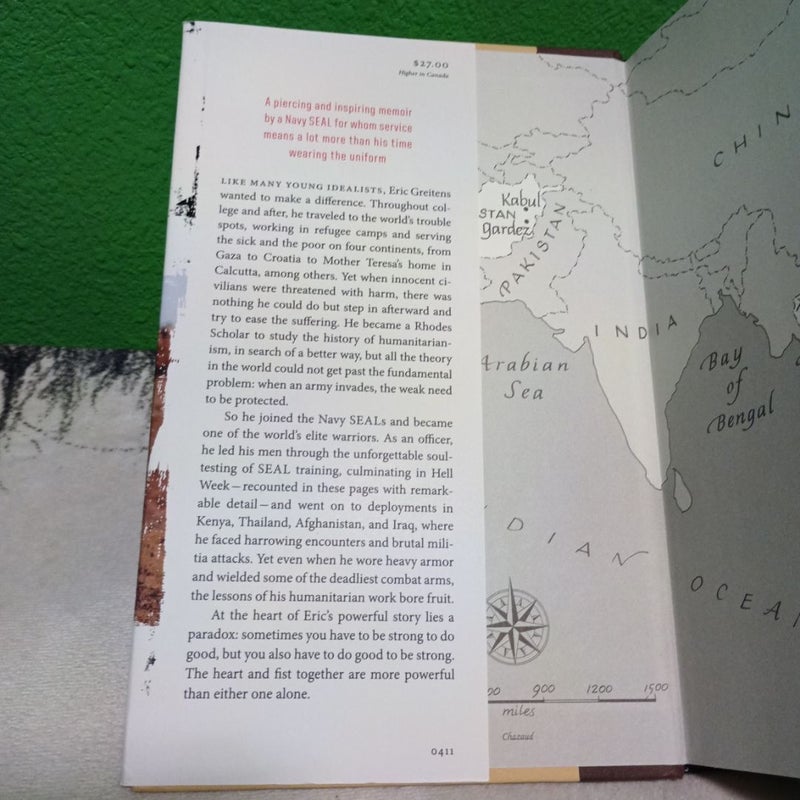 $27.00
Higher in Canada
A piercing and inspiring memoir
by a Navy SEAL for whom service
means a lot more than his time
wearing the uniform
LIKE MANY YOUNG IDEALISTS, Eric Greitens
wanted to make a difference. Throughout col-
lege and after, he traveled to the world's trouble
spots, working in refugee camps and serving
the sick and the poor on four continents, from
Gaza to Croatia to Mother Teresa's home in
Calcutta, among others. Yet when innocent ci-
vilians were threatened with harm, there was
nothing he could do but step in afterward and
try to ease the suffering. He became a Rhodes
Scholar to study the history of humanitarian-
ism, in search of a better way, but all the theory
in the world could not get past the fundamental
problem: when an army invades, the weak need
to be protected.
So he joined the Navy SEALs and became
one of the world's elite warriors. As an officer,
he led his men through the unforgettable soul-
testing of SEAL training, culminating in Hell
Week—recounted in these pages with remark-
able detail—and went on to deployments in
Kenya, Thailand, Afghanistan, and Iraq, where
he faced harrowing encounters and brutal mili-
tia attacks. Yet even when he wore heavy armor
and wielded some of the deadliest combat arms,
the lessons of his humanitarian work bore fruit.
At the heart of Eric's powerful story lies a
paradox: sometimes you have to be strong to do
good, but you also have to do good to be strong.
The heart and fist together are more powerful
than either one alone.
0411
CHIN
Kabul
STAN
Gardez
PAKISTAN
INDIA
Arabian
Sea
Bay
of
Bengal
DIAN
OCEAN
00 900 1200 1500
miles
Chazaud